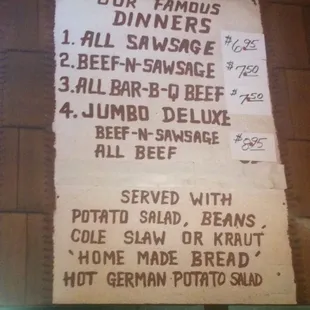 OUR FAMOUS
DINNERS
1. ALL SAWSAGE $6.95
2. BEEF-N-SAWSAGE $7.50
3. ALL BAR-B-Q BEEF $7.50
4. JUMBO DELUXE
BEEF-N-SAWSAGE $8.95
ALL BEEF
SERVED WITH
POTATO SALAD, BEANS,
COLE SLAW OR KRAUT
"HOME MADE BREAD"
HOT GERMAN POTATO SALAD